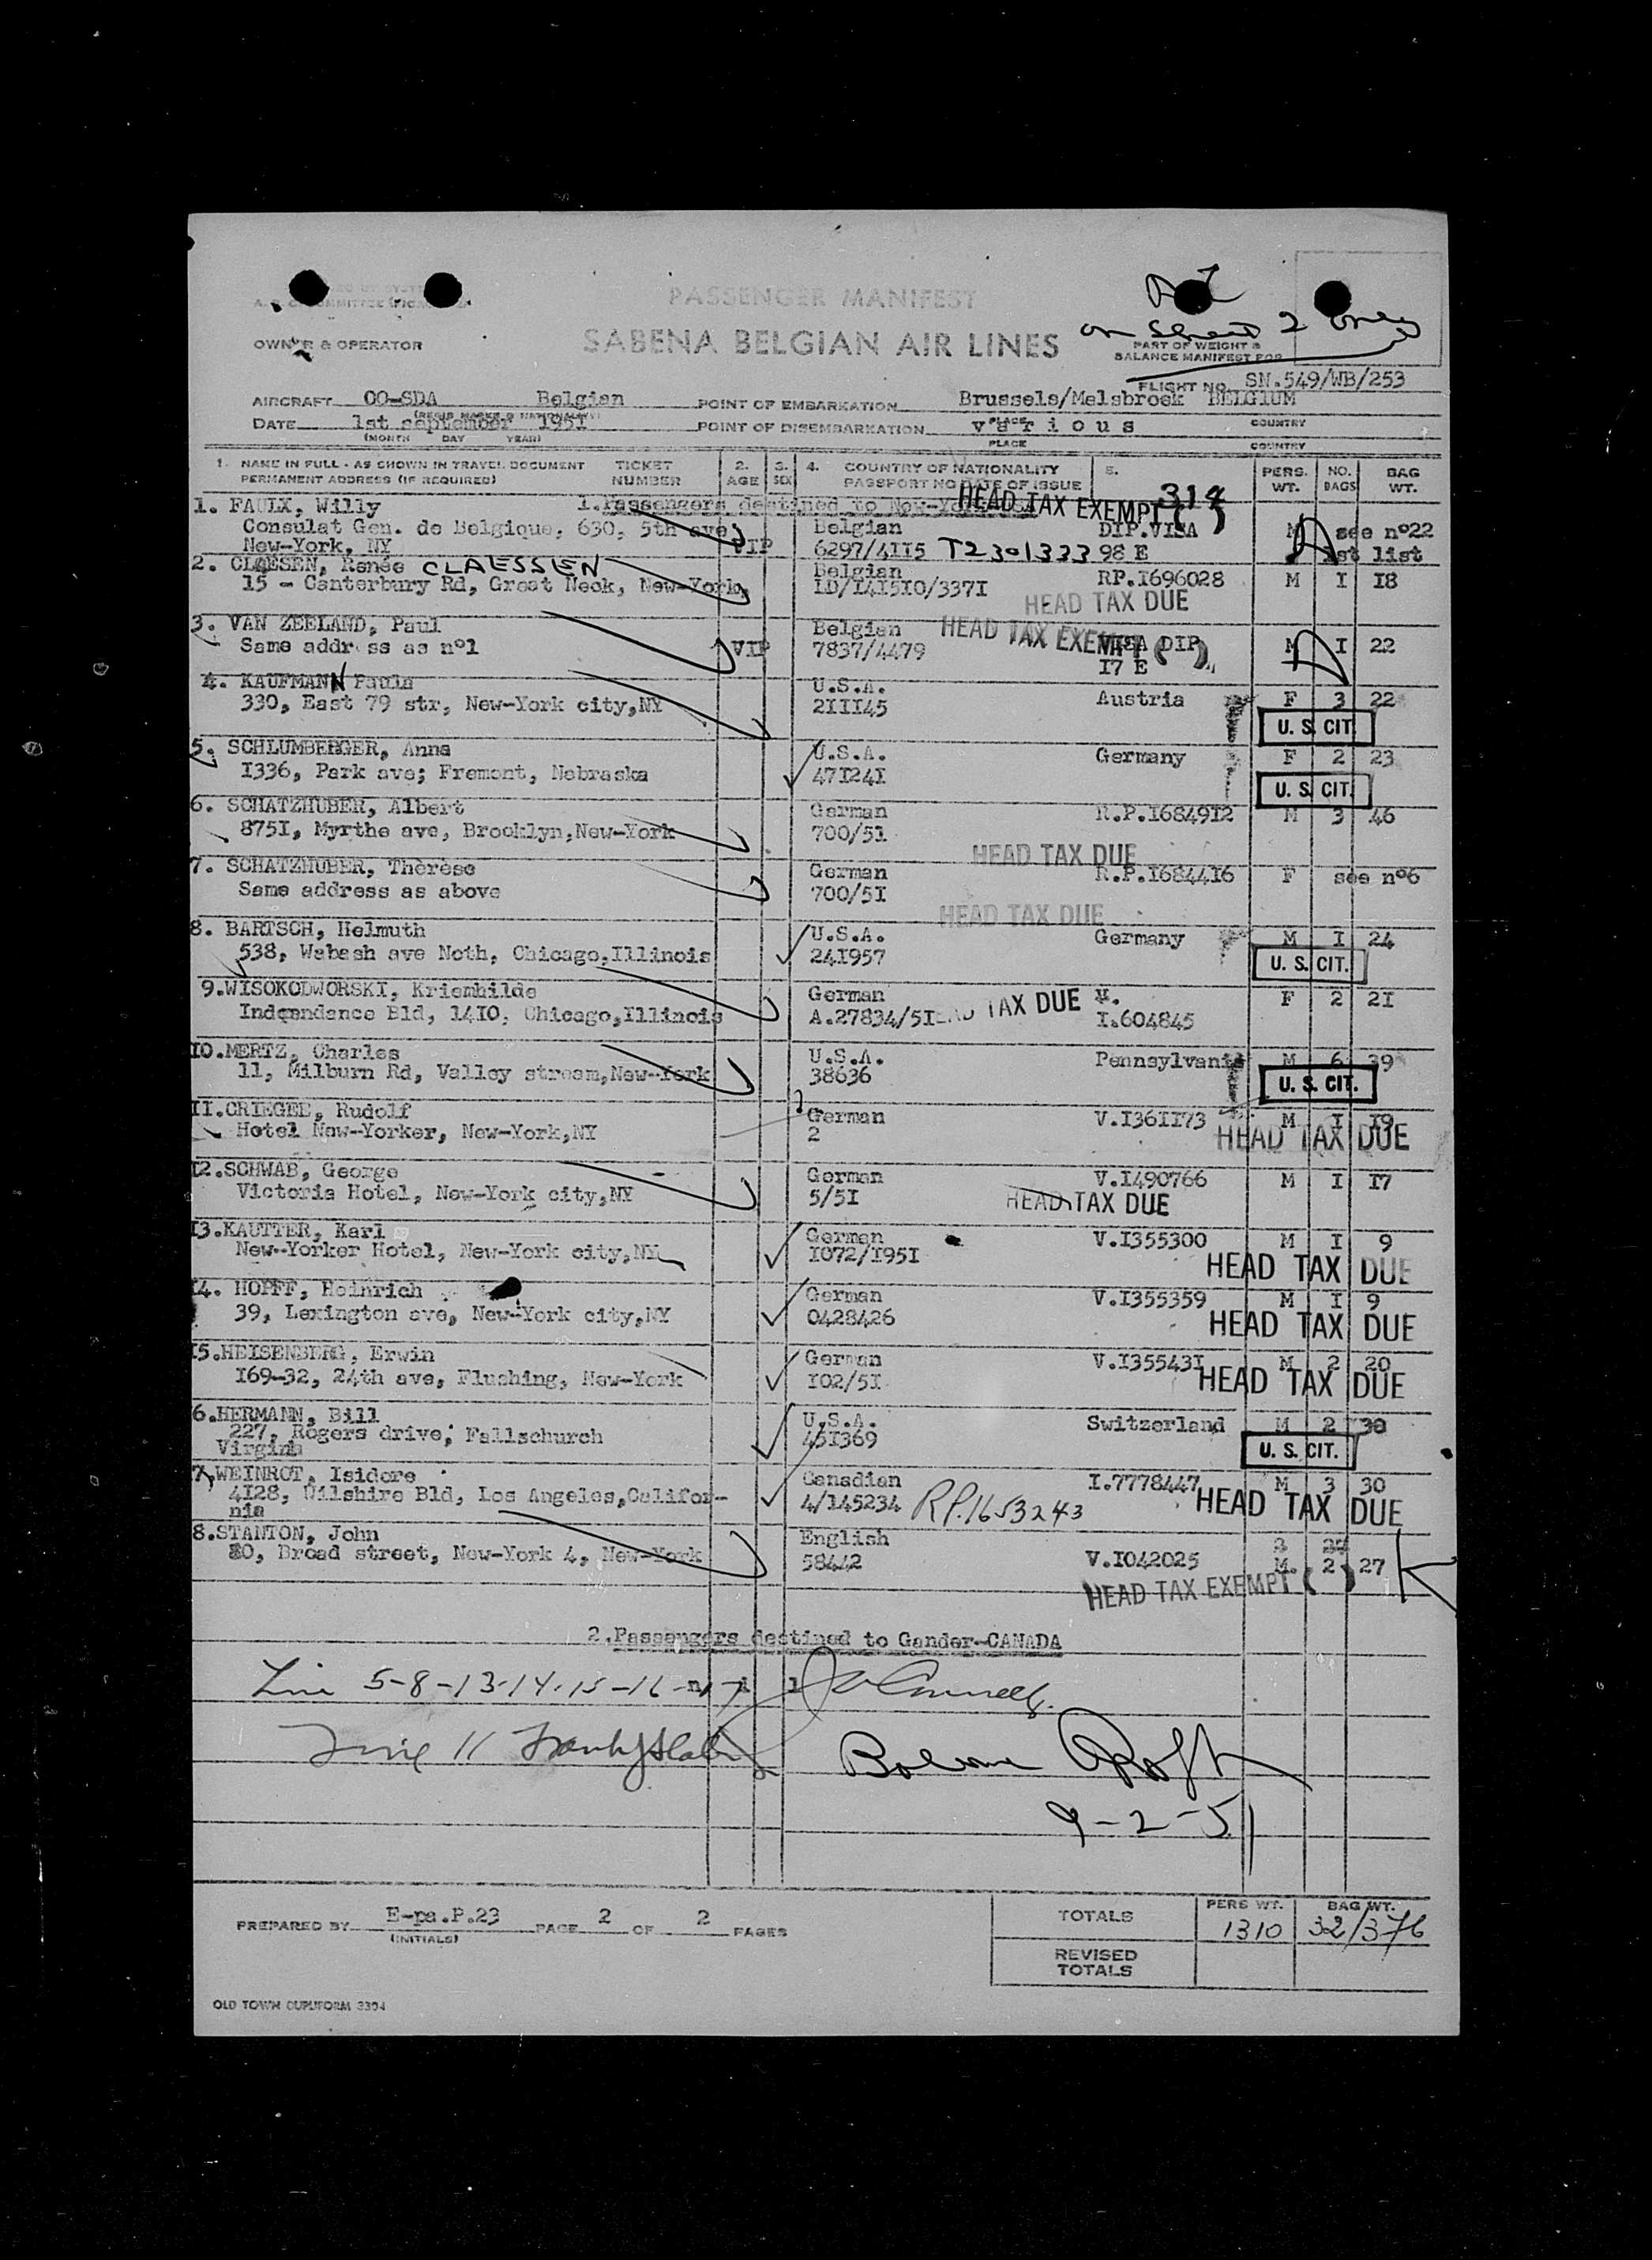 PASSENGER MANIFEST
SABENA BELGIAN AIR LINES
on sheet 2 only
OWNER & OPERATOR
PART OF WEIGHT &
BALANCE MANIFEST FOR
FLIGHT NO. SN.549/WB/253
AIRCRAFT OO-SDA Belgian POINT OF EMBARKATION Brussels/Melsbroek BELGIUM
(REGIS MARKS & NATIONALITY) PLACE COUNTRY
DATE 1st september 195I POINT OF DISEMBARKATION various
(MONTH DAY YEAR) PLACE COUNTRY
1. NAME IN FULL - AS SHOWN IN TRAVEL DOCUMENT TICKET 2. 3. 4. COUNTRY OF NATIONALITY 5. PERS. NO. BAG
PERMANENT ADDRESS (IF REQUIRED) NUMBER AGE SEX PASSPORT NO DATE OF ISSUE WT. BAGS WT.
1. FAULX, Willy 1.Passengers destined to New-York HEAD TAX EXEMPT ( ) 314
Consulat Gen. de Belgique, 630, 5th ave, Belgian DIP.VISA M see nº22
New-York, NY VIP 6297/4II5 T2301333 98 E 1st list
2. CLAESEN, Renée CLAESSEN Belgian RP.I696028 M I I8
15 - Canterbury Rd, Great Neck, New-York, LD/I4I5IO/337I
HEAD TAX DUE
3. VAN ZEELAND, Paul Belgian HEAD TAX EXEMPT ( ) VISA DIP M I 22
Same address as nº1 VIP 7837/4479 I7 E
4. KAUFMANN Paula U.S.A. Austria F 3 22
330, East 79 str, New-York city,NY 2III45
U. S. CIT.
5. SCHLUMBERGER, Anna U.S.A. Germany F 2 23
I336, Park ave; Fremont, Nebraska 47I24I
U. S. CIT.
6. SCHATZHUBER, Albert German R.P.I6849I2 M 3 46
875I, Myrthe ave, Brooklyn,New-York 700/51
HEAD TAX DUE
7. SCHATZHUBER, Thérèse German R.P.I6844I6 F see nº6
Same address as above 700/5I
HEAD TAX DUE
8. BARTSCH, Helmuth U.S.A. Germany M I 24
538, Wabash ave Noth, Chicago,Illinois 24I957
U. S. CIT.
9.WISOKODWORSKI, Kriemhilde German V. F 2 2I
Indepndance Bld, 14IO, Chicago,Illinois A.27834/5I HEAD TAX DUE I.604845
IO.MERTZ, Charles U.S.A. Pennsylvania M 6 39
11, Milburn Rd, Valley stream,New-York 38636
U. S. CIT.
II.CRIEGEE, Rudolf German V.I36II73 M I I9
Hotel New-Yorker, New-York,NY 2 HEAD TAX DUE
I2.SCHWAB, George German V.I490766 M I I7
Victoria Hotel, New-York city,NY 5/5I HEAD TAX DUE
I3.KAUTTER, Karl German V.I355300 M I 9
New-Yorker Hotel, New-York city,NY I072/I95I HEAD TAX DUE
I4. HOPFF, Heinrich German V.I355359 M I 9
39, Lexington ave, New-York city,NY 0428426 HEAD TAX DUE
I5.HEISENBERG, Erwin German V.I35543I M 2 20
I69-32, 24th ave, Flushing, New-York I02/5I HEAD TAX DUE
6.HERMANN, Bill U.S.A. Switzerland M 2 30
227, Rogers drive; Fallschurch 45I369
Virginia U. S. CIT.
7.WEINROT, Isidore Canadian I.7778447 M 3 30
4I28, Wilshire Bld, Los Angeles,Califor- 4/145234 RP.1653243 HEAD TAX DUE
nia
8.STANTON, John English
80, Broad street, New-York 4, New-York 58442 V.I042025 M. 2 27
HEAD TAX EXEMPT ( )
2.Passengers destined to Gander-CANADA
n i l
Line 5-8-13-14-15-16-17
Line 11
9-2-51
PREPARED BY E-pa.P.23 PAGE 2 OF 2 PAGES
(INITIALS)
TOTALS PERS WT. 1310 BAG WT. 32/376
REVISED
TOTALS
OLD TOWN DUPLIFORM 3304